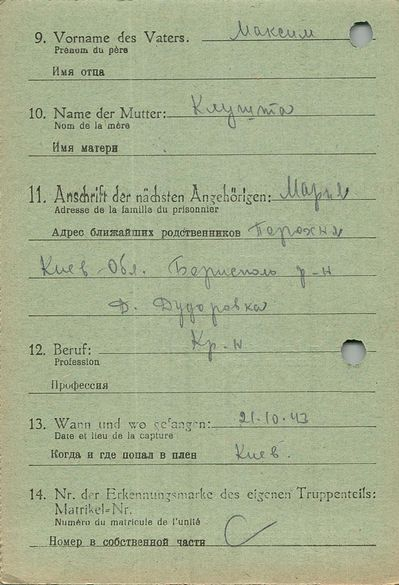 9. Vorname des Vaters: Максим
Prénom du père
Имя отца
10. Name der Mutter:
Nom de la mère
Имя матери
11. Anschrift der nächsten Angehörigen: Мария
Adresse de la famille du prisonnier
Адрес ближайших родственников
Киев-Обл. Бориполь р-н
Д. Дударовка
12. Beruf: Кр-н
Profession
Профессия
13. Wann und wo gefangen: 21.10.43
Date et lieu de la capture
Когда и где попал в плен Киев.
14. Nr. der Erkennungsmarke des eigenen Truppenteils:
Matrikel-Nr.
Numéro du matricule de l'unité
Номер в собственной части